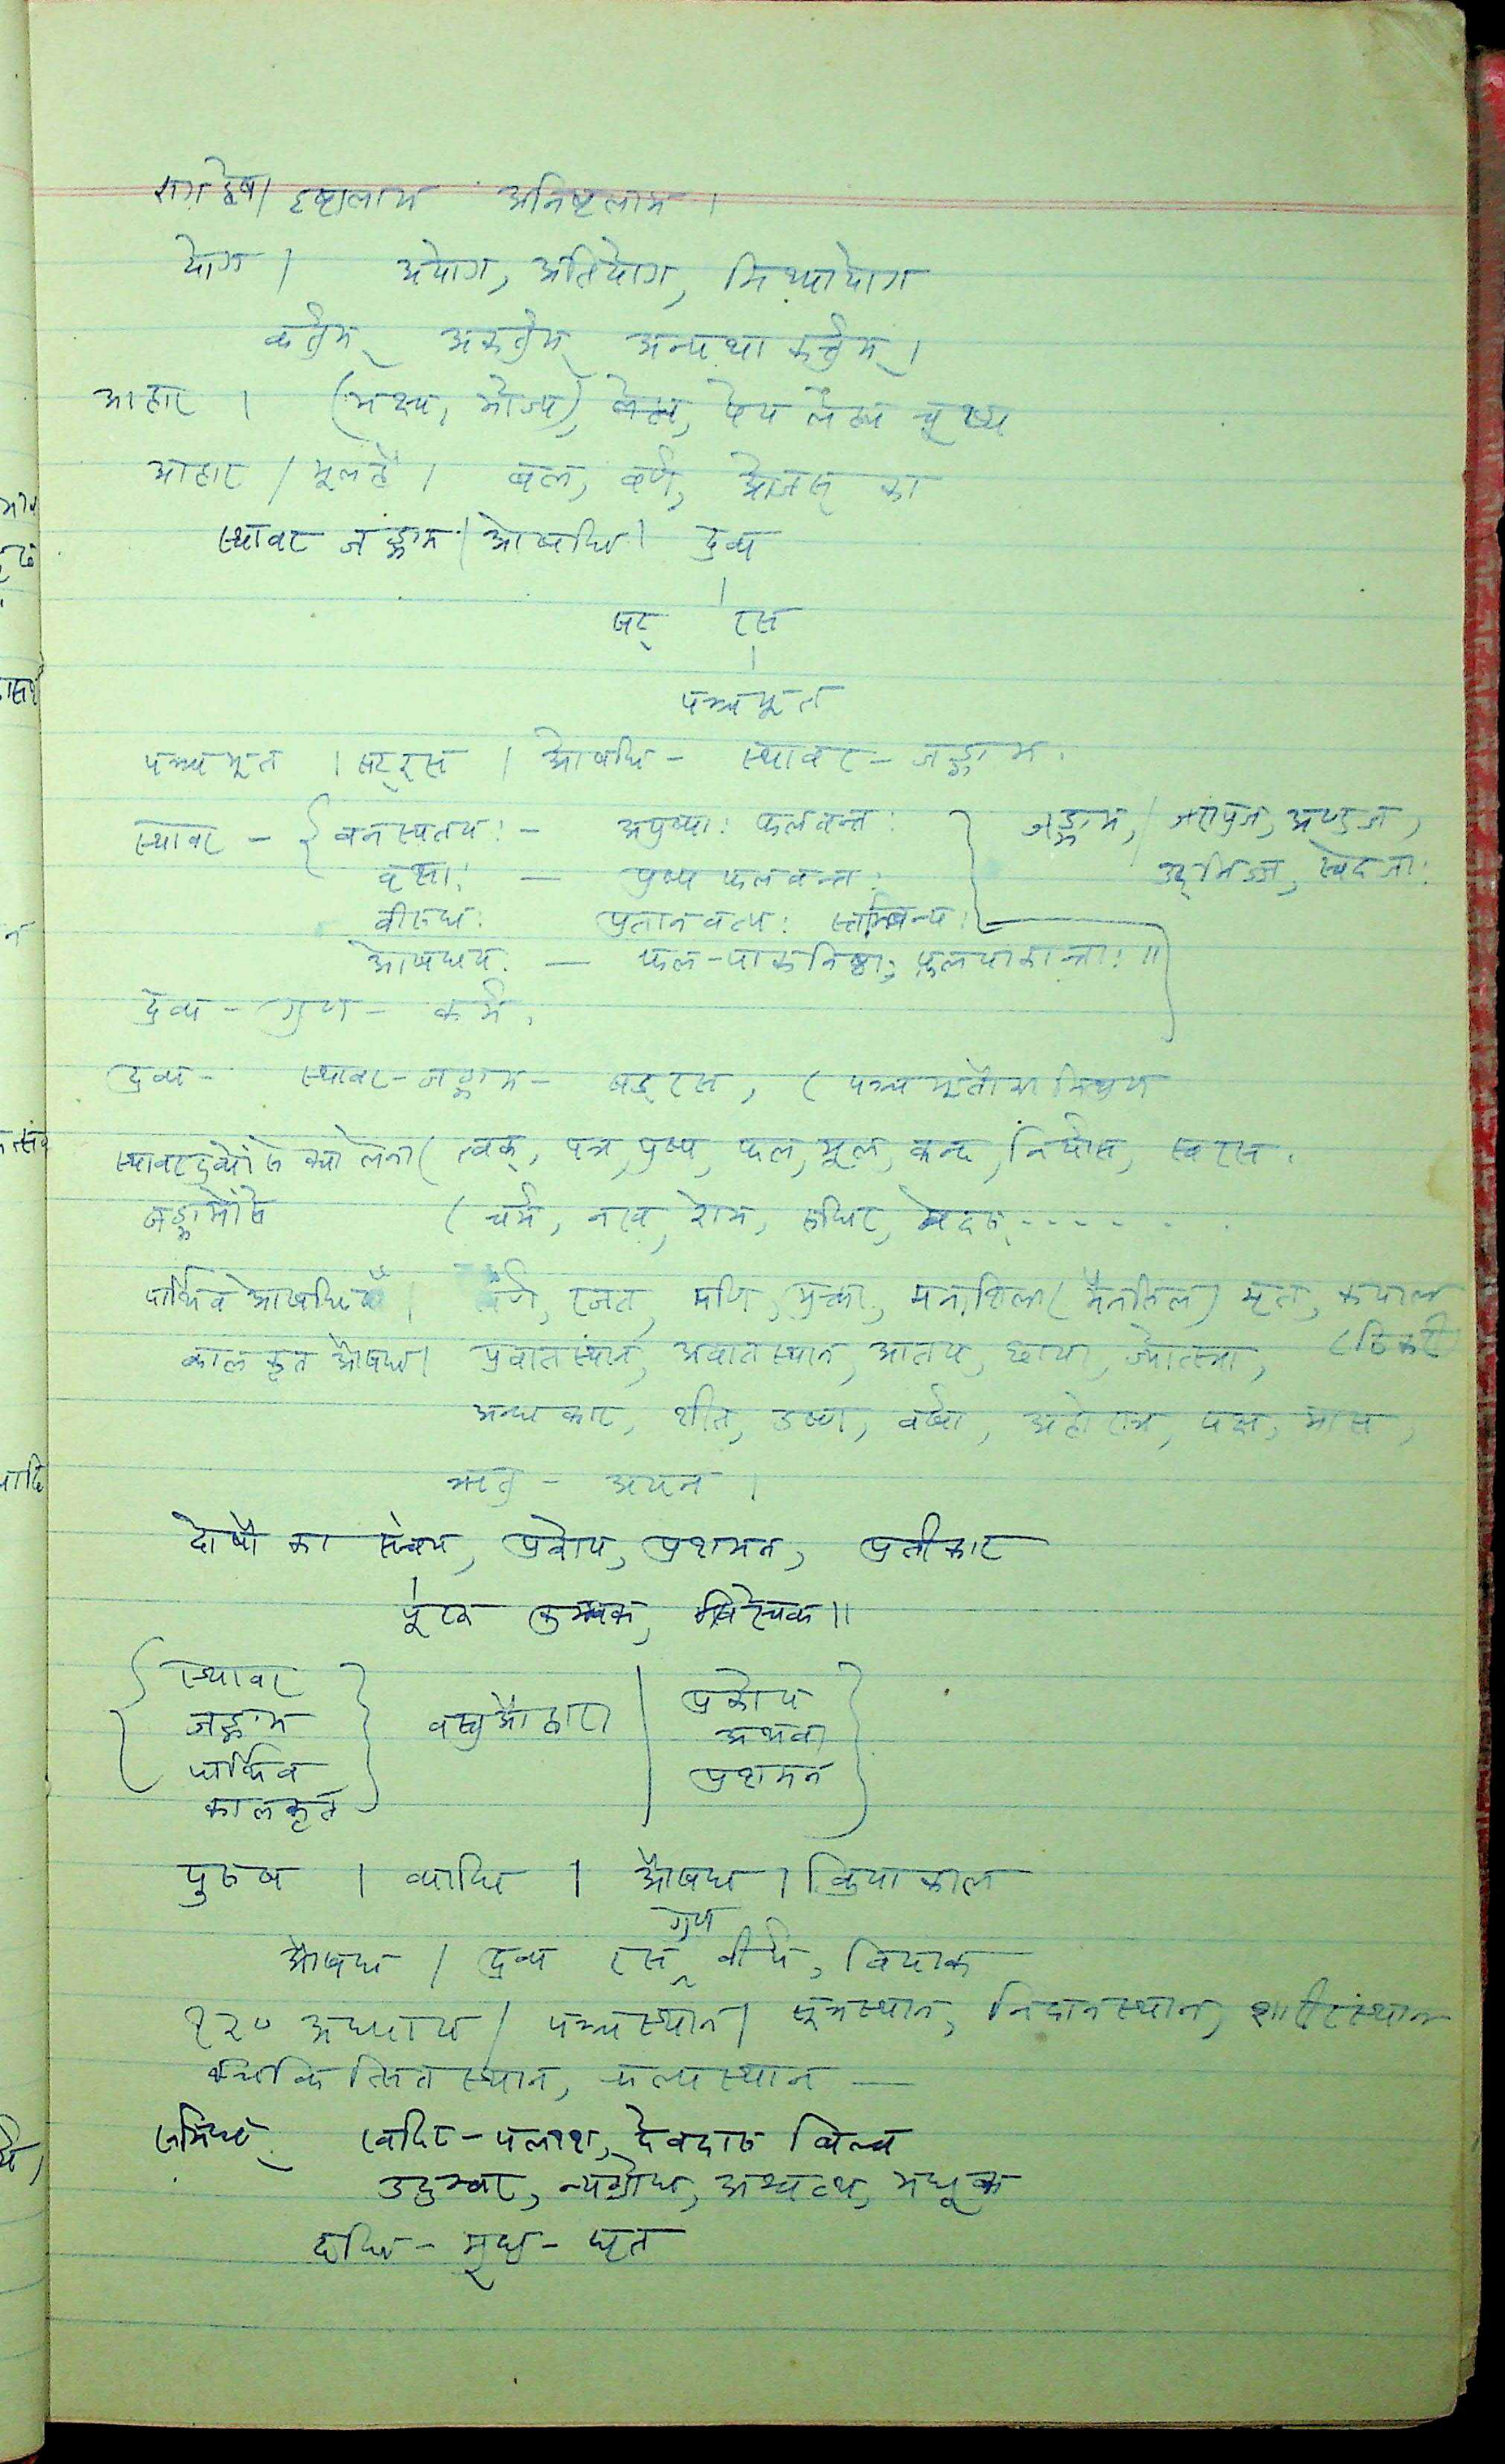 रागद्वेष। इष्टलाभ अनिष्टलाभ ।
योग । अयोग, अतियोग, मिथ्यायोग
कर्तुम् अकर्तुम् अन्यथा कर्तुम् ।
आहार । (भक्ष्य, भोज्य), पेय लेह्य चूष्य
आहार । मूल है । बल, वर्ण, ओजस् का
स्थावर जङ्गम । ओषधि । द्रव्य
षट् रस
पञ्चभूत
पञ्चभूत । षट् रस । ओषधि - स्थावर - जङ्गम.
स्थावर - { वनस्पतयः - अपुष्पाः फलवन्तः } जङ्गम, / जरायुज, अण्डज,
वृक्षाः — पुष्प फलवन्तः उद्भिज्ज, स्वेदजाः
वीरुधः प्रतानवत्यः स्तम्बिन्यः
ओषधयः — फल-पाकनिष्ठाः फलपाकान्ताः ॥
द्रव्य - गुण - कर्म,
द्रव्य - स्थावर - जङ्गम - षड् रस, ( पञ्चभूतों का मिश्रण
स्थावरद्रव्यों से क्या लेना ( त्वक्, पत्र, पुष्प, फल, मूल, कन्द, निर्यास, स्वरस.
जङ्गमों से ( चर्म, नख, रोम, रुधिर, ------
पार्थिव ओषधियाँ । रजत, मणि, मुक्ता, मनःशिला (मैनसिल) मृत, कपाल
कालकृत औषध । प्रवातस्थान, अवातस्थान, आतप, छाया, ज्योत्स्ना, (ठिकरी
अन्धकार, शीत, उष्ण, वर्षा, अहोरात्र, पक्ष, मास,
ऋतु - अयन ।
दोषों का संचय, प्रकोप, प्रशमन, प्रतीकार
पूरक कुम्भक, विरेचक ॥
{ स्थावर } प्रकोप }
जङ्गम अथवा
पार्थिव प्रशमन
कालकृत
पुरुष । व्याधि । औषध । क्रियाकाल
गुण
औषध / द्रव्य रस वीर्य, विपाक
१२० अध्याय / पञ्चस्थान / सूत्रस्थान, निदानस्थान, शारीरस्थान
चिकित्सितस्थान, कल्पस्थान —
समिधः खदिर - पलाश, देवदारु बिल्व
उदुम्बर, न्यग्रोध, अश्वत्थ, मधूक
दधि - मधु - घृत